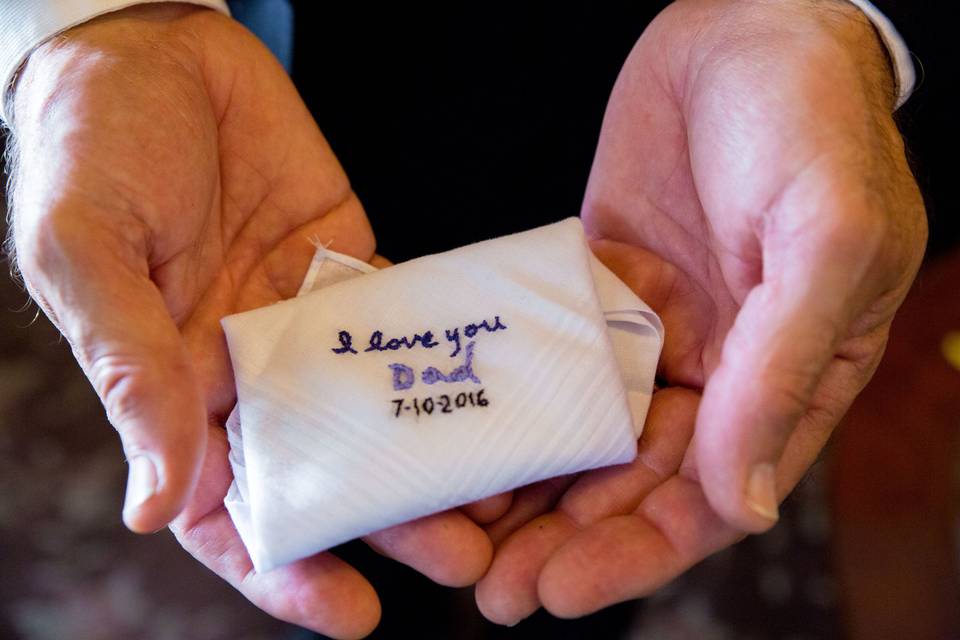 I love you
Dad
7-10-2016